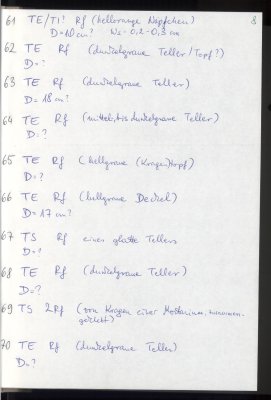 8
61 TE/TI? Rf (hellorange Näpfchen)
D=10cm? Ws=-0,2-0,3 cm
62 TE Rf (dunkelgraue Teller/Topf?)
D=?
63 TE Rf (dunkelgraue Teller)
D=18cm?
64 TE Rf (mittel- bis dunkelgraue Teller)
D=?
65 TE Rf (hellgraue (Kragen)topf)
D=?
66 TE Rf (hellgraue Deckel)
D=17cm?
67 TS Rf eines glatte Tellers
D=?
68 TE Rf (dunkelgraue Teller)
D=?
69 TS 2Rf (von Kragen einer Mortarium, zusammen-
geklebt)
70 TE Rf (dunkelgraue Teller)
D=?